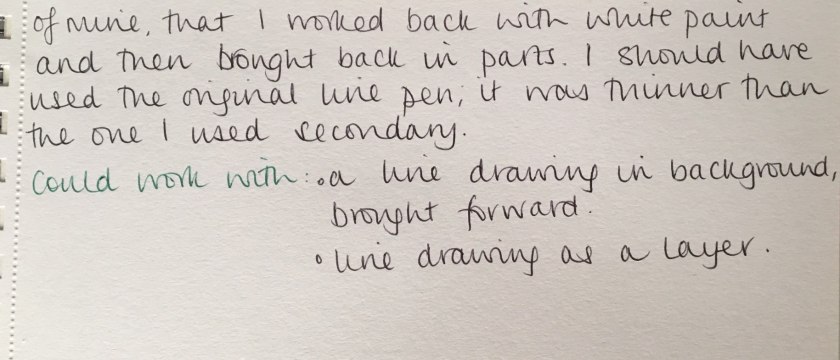 of mine, that I worked back with white paint
and then brought back in parts. I should have
used the original line pen; it was thinner than
the one I used secondary.
Could work with: • a line drawing in background,
brought forward.
• line drawing as a layer.